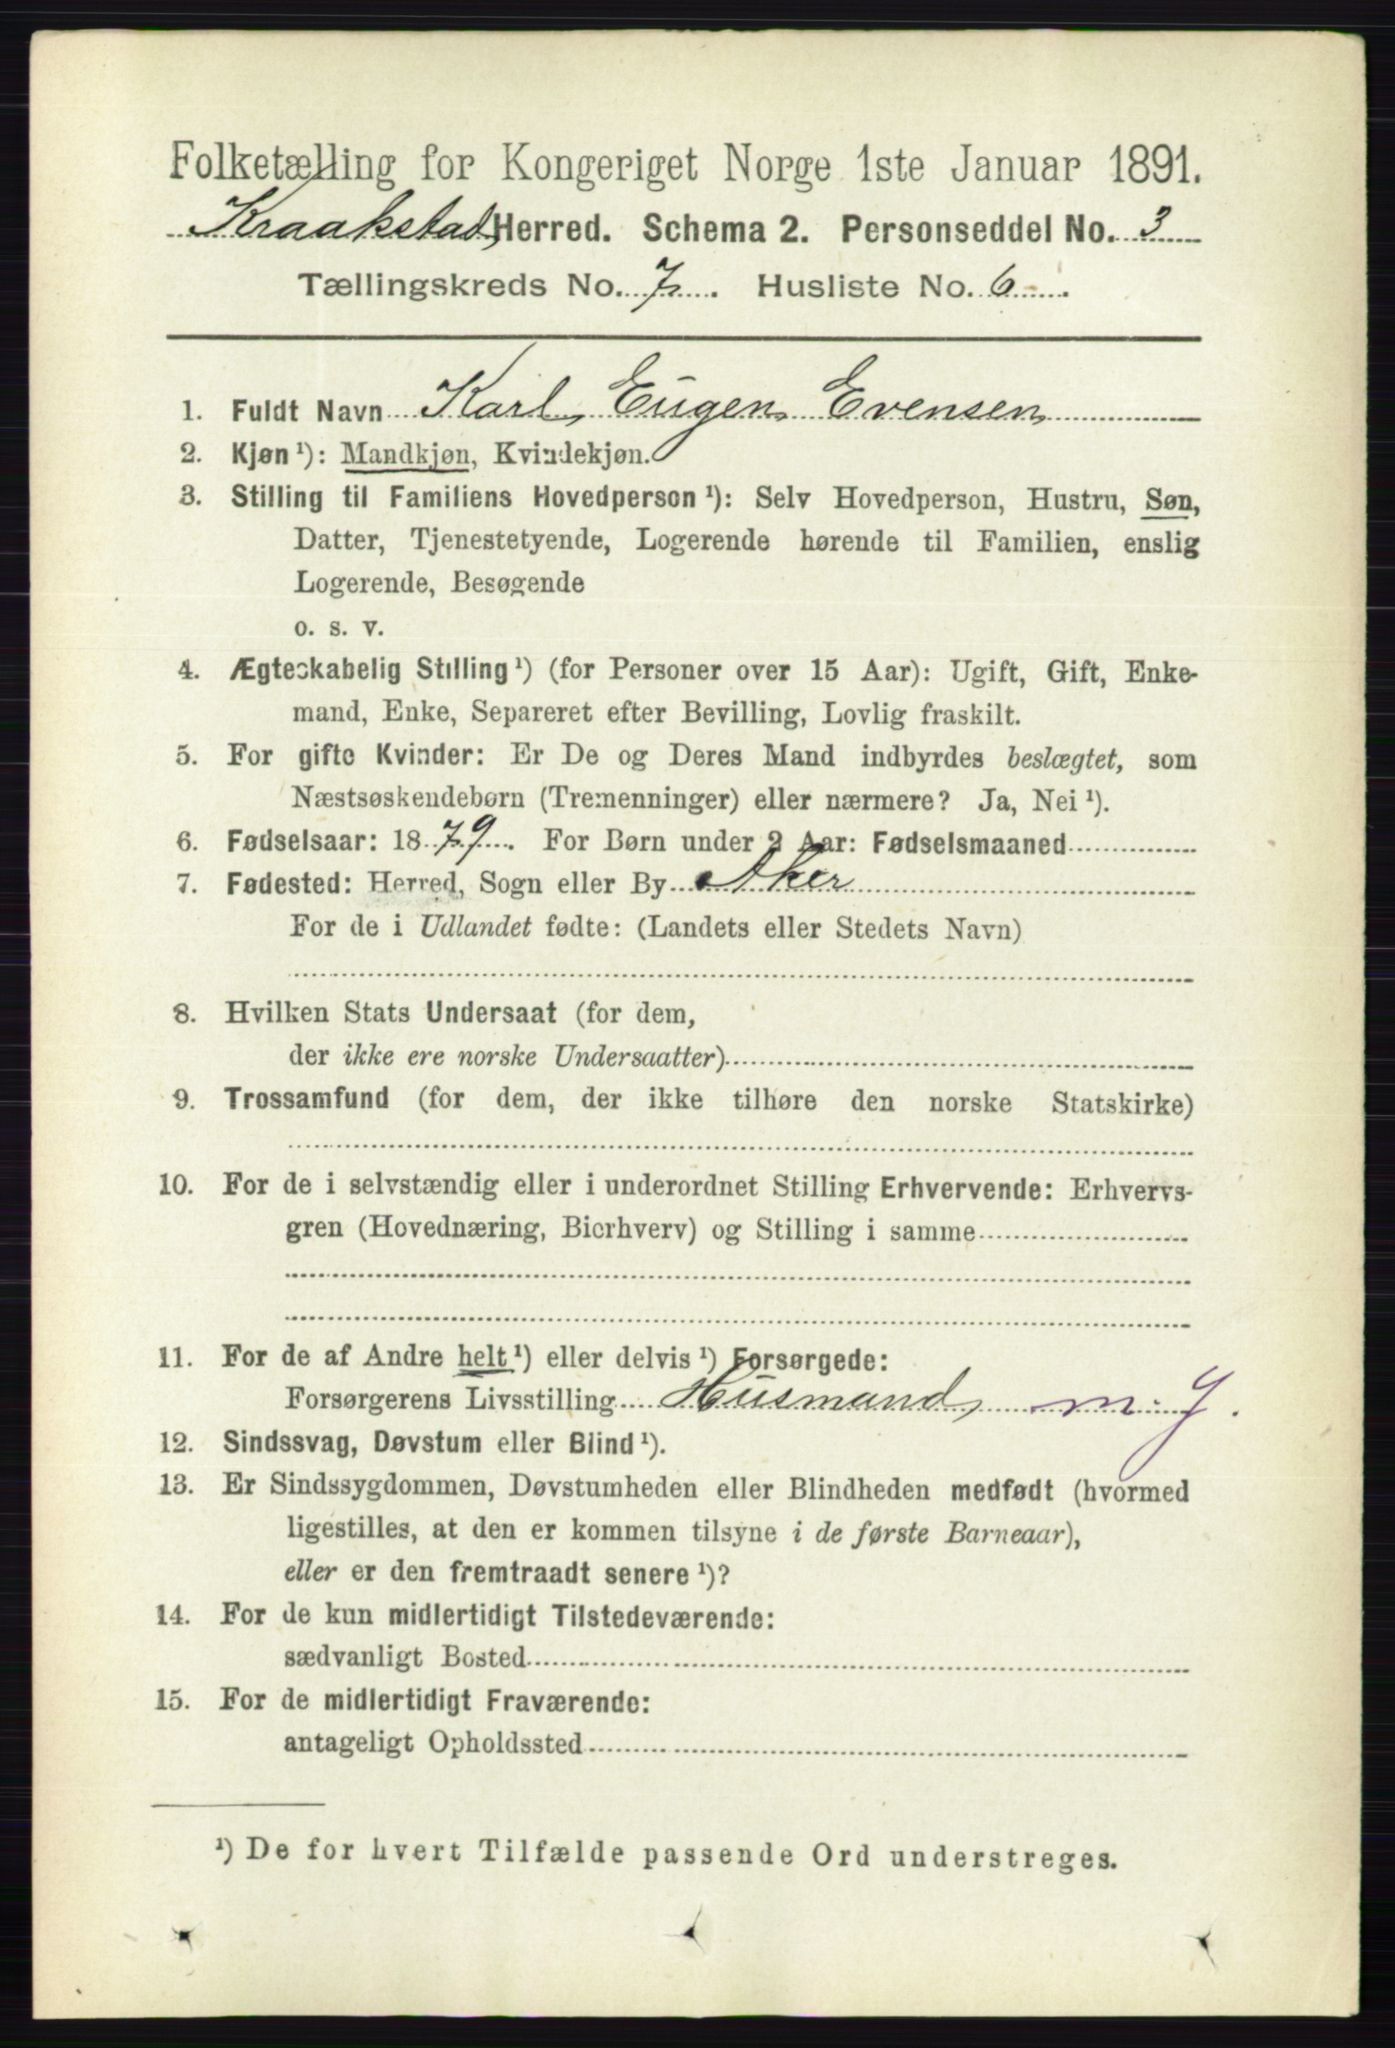 Folketælling for Kongeriget Norge 1ste Januar 1891.
Kraakstad Herred. Schema 2. Personseddel No. 3
Tællingskreds No. 7. Husliste No. 6.
1. Fuldt Navn Karl Eugen Evensen
2. Kjøn¹): Mandkjøn, Kvindekjøn.
3. Stilling til Familiens Hovedperson¹): Selv Hovedperson, Hustru, Søn,
Datter, Tjenestetyende, Logerende hørende til Familien, enslig
Logerende, Besøgende
o. s. v.
4. Ægteskabelig Stilling¹) (for Personer over 15 Aar): Ugift, Gift, Enke-
mand, Enke, Separeret efter Bevilling, Lovlig fraskilt.
5. For gifte Kvinder: Er De og Deres Mand indbyrdes beslægtet, som
Næstsøskendebørn (Tremenninger) eller nærmere? Ja, Nei¹).
6. Fødselsaar: 1879. For Børn under 2 Aar: Fødselsmaaned
7. Fødested: Herred, Sogn eller By Aker
For de i Udlandet fødte: (Landets eller Stedets Navn)
8. Hvilken Stats Undersaat (for dem,
der ikke ere norske Undersaatter)
9. Trossamfund (for dem, der ikke tilhøre den norske Statskirke)
10. For de i selvstændig eller i underordnet Stilling Erhvervende: Erhvervs-
gren (Hovednæring, Bierhverv) og Stilling i samme
11. For de af Andre helt¹) eller delvis¹) Forsørgede:
Forsørgerens Livsstilling Husmand m. J.
12. Sindssvag, Døvstum eller Blind¹).
13. Er Sindssygdommen, Døvstumheden eller Blindheden medfødt (hvormed
ligestilles, at den er kommen tilsyne i de første Barneaar),
eller er den fremtraadt senere¹)?
14. For de kun midlertidigt Tilstedeværende:
sædvanligt Bosted
15. For de midlertidigt Fraværende:
antageligt Opholdssted
¹) De for hvert Tilfælde passende Ord understreges.